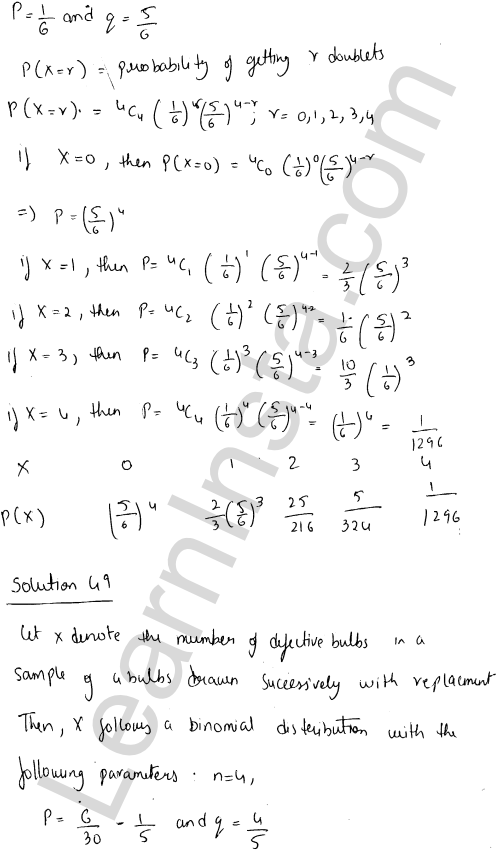 P = 1/6 and q = 5/6
P(X=r) = probability of getting r doublets
P(X=r). = ⁴C₄ (1/6)ʳ (5/6)⁴⁻ʳ ; r = 0,1,2,3,4
if X=0, then P(X=0) = ⁴C₀ (1/6)⁰ (5/6)⁴⁻ʳ
=) P = (5/6)⁴
if X=1, then P = ⁴C₁ (1/6)¹ (5/6)⁴⁻¹ = 2/3 (5/6)³
if X=2, then P = ⁴C₂ (1/6)² (5/6)⁴⁻² = 1/6 (5/6)²
if X=3, then P = ⁴C₃ (1/6)³ (5/6)⁴⁻³ = 10/3 (1/6)³
if X=4, then P = ⁴C₄ (1/6)⁴ (5/6)⁴⁻⁴ = (1/6)⁴ = 1/1296
X 0 1 2 3 4
P(X) (5/6)⁴ 2/3 (5/6)³ 25/216 5/324 1/1296
Solution 49
Let x denote the number of defective bulbs in a
sample of 4 bulbs drawn successively with replacment
Then, X follows a binomial distribution with the
following parameters. n=4,
P = 6/30 - 1/5 and q = 4/5
LearnInsta.com